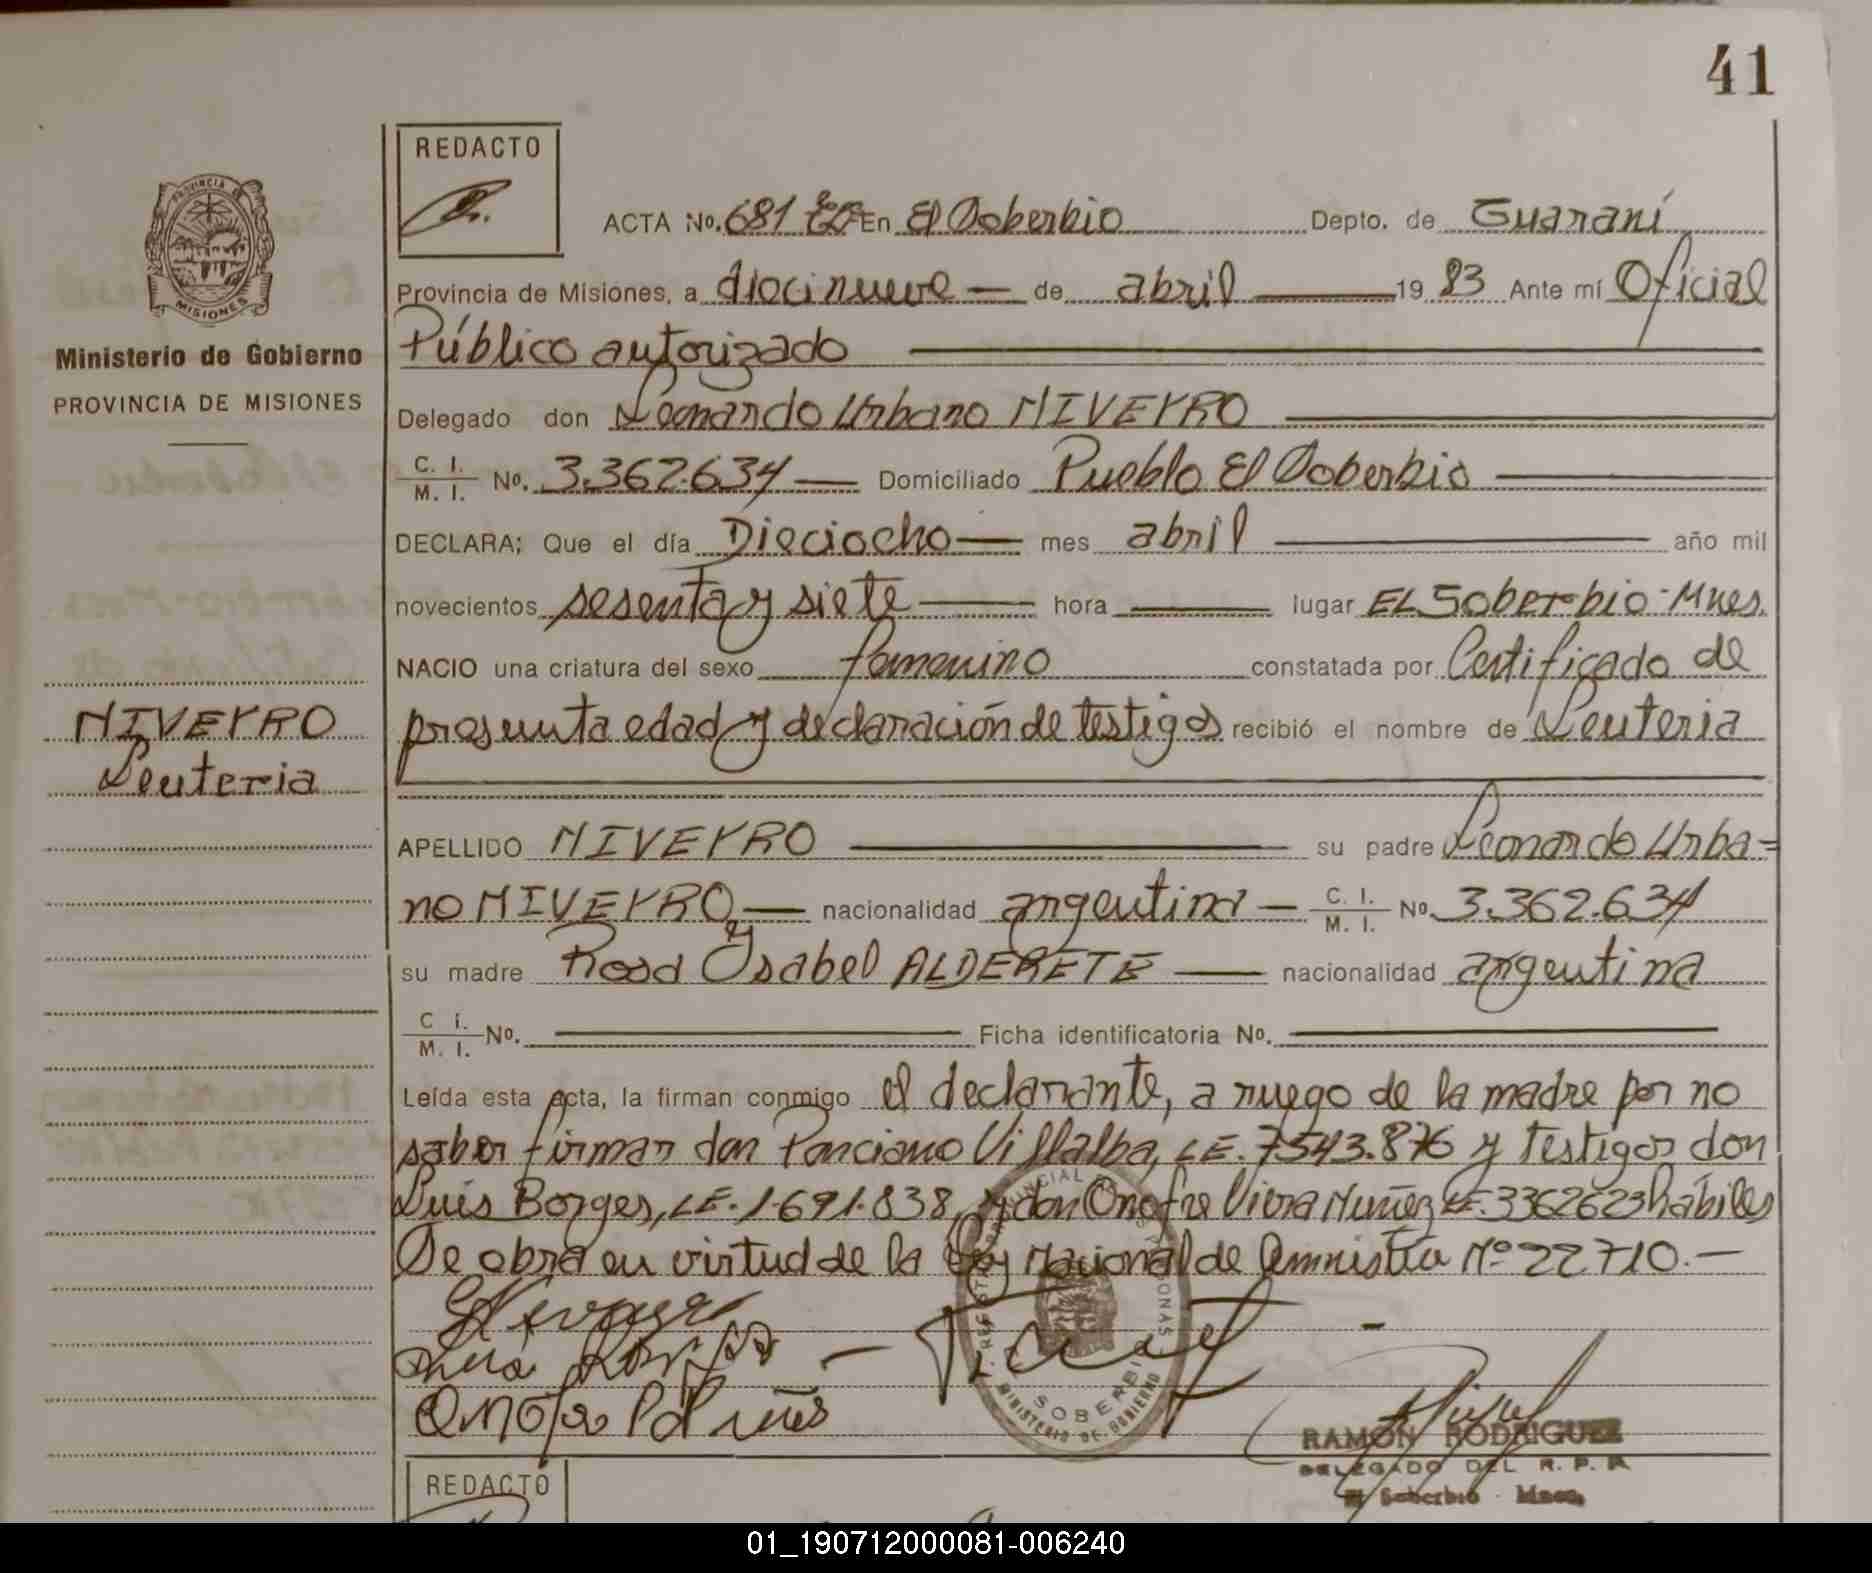 41
REDACTO
ACTA No. 681 En El Soberbio Depto. de Guaraní
Provincia de Misiones, a diecinueve — de abril — 19 83 Ante mí Oficial
Público autorizado
Ministerio de Gobierno
PROVINCIA DE MISIONES
PROVINCIA DE
MISIONES
Delegado don Leonardo Urbano NIVEYRO
C. I. / M. I. No. 3.362.634 — Domiciliado Pueblo El Soberbio
DECLARA; Que el día Dieciocho — mes abril — año mil
novecientos sesenta y siete — hora — lugar EL Soberbio - Mnes.
NACIO una criatura del sexo femenino constatada por Certificado de
presunta edad y declaración de testigos recibió el nombre de Leuteria
NIVEYRO
Leuteria
APELLIDO NIVEYRO — su padre Leonardo Urba=
no NIVEYRO — nacionalidad argentina — C. I. / M. I. No. 3.362.634
su madre Rosa Ysabel ALDERETE — nacionalidad argentina
C I. / M. I. No. — Ficha identificatoria No. —
Leída esta acta, la firman conmigo el declarante, a ruego de la madre por no
saber firmar don Ponciano Villalba, LE. 7543.876 y testigos don
Luis Borges, LE. 1.691.838, y don Onofre Viera Nuñez LE. 3362623 habiles
Se obra en virtud de la Ley Nacional de Amnistía Nº 22710. —
SOBERBIO
MINISTERIO DE GOBIERNO
RAMON RODRIGUEZ
DELEGADO DEL R. P. P.
El Soberbio - Mnes.
REDACTO
01_190712000081-006240